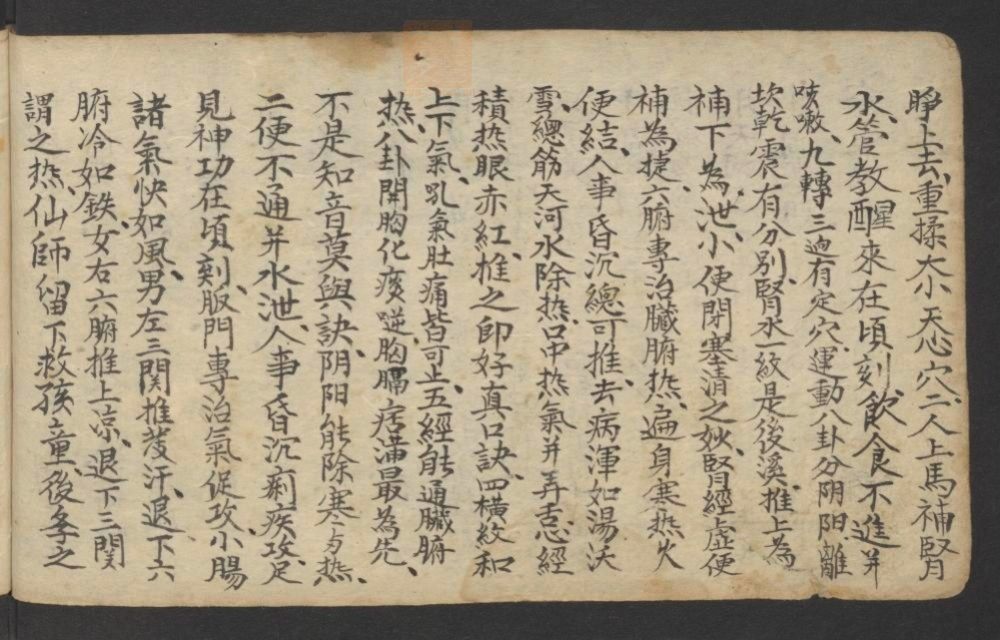 睁上去、重揉大小天心穴、二人上馬補腎
水管教醒來在頃刻飲食不進并
咳嗽、九轉三迴有定穴、運動八卦分阴阳離
坎乾震有分別、腎水一紋是後溪、推上為
補下為泄、小便閉塞清之妙、腎經虛便
補為捷、六腑專治臟腑热、遍身寒热火
便結、人事昏沉總可推、去病渾如湯沃
雪、總筋天河水除热、口中热氣并弄舌、心經
積热眼赤紅、推之即好真口訣、四橫紋和
上下氣、乳氣肚痛皆可止、五經能通臟腑
热、八卦開胸化痰逆、胸膈痞滿最為先、
不是知音莫與訣、阴阳能除寒与热、
二便不通并水泄、人事昏沉痢疾攻、足
見神功在頃刻、版門專治氣促攻、小腸
諸氣快如風、男左三関推發汗、退下六
腑冷如鉄、女右六腑推上凉、退下三関
謂之热、仙師留下救孩童、後季之